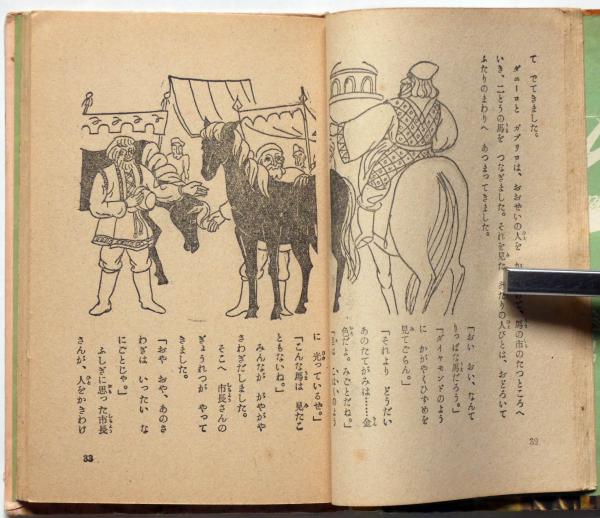 て でてきました。
ダニーロと ガブリロは、おおぜいの人を か 馬の市のたつところへ
いき、二とうの馬を つなぎました。それを見た、あたりの人びとは、おどろいて
ふたりのまわりへ あつまってきました。
「おい おい、なんて
りっぱな馬だろう。」
「ダイヤモンドのよう
に かがやくひずめを
見てごらん。」
「それより どうだい
あのたてがみは……金
色だよ。みごとだね。」
のよう
32
に 光っているぜ。」
「こんな馬は 見たこ
ともないね。」
みんなが がやがや
さわぎだしました。
そこへ 市長さんの
ぎょうれつが やって
きました。
「おや おや、あのさ
わぎは いったい な
にごとじゃ。」
ふしぎに思った市長
さんが、人をかきわけ
33